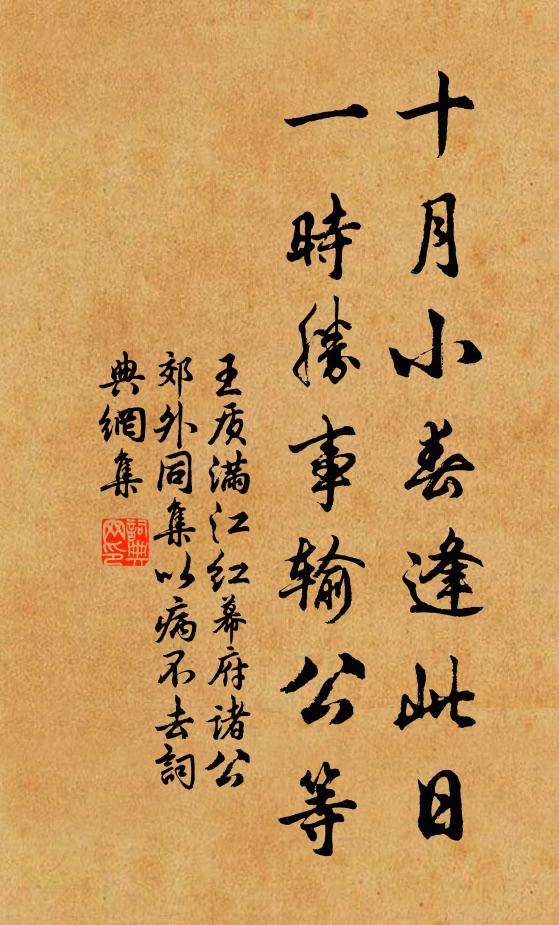 十月小春逢此日
一時勝事输公等
王质满江红幕府诸公
郊外同集以病不去詞
典網集
詞典网印